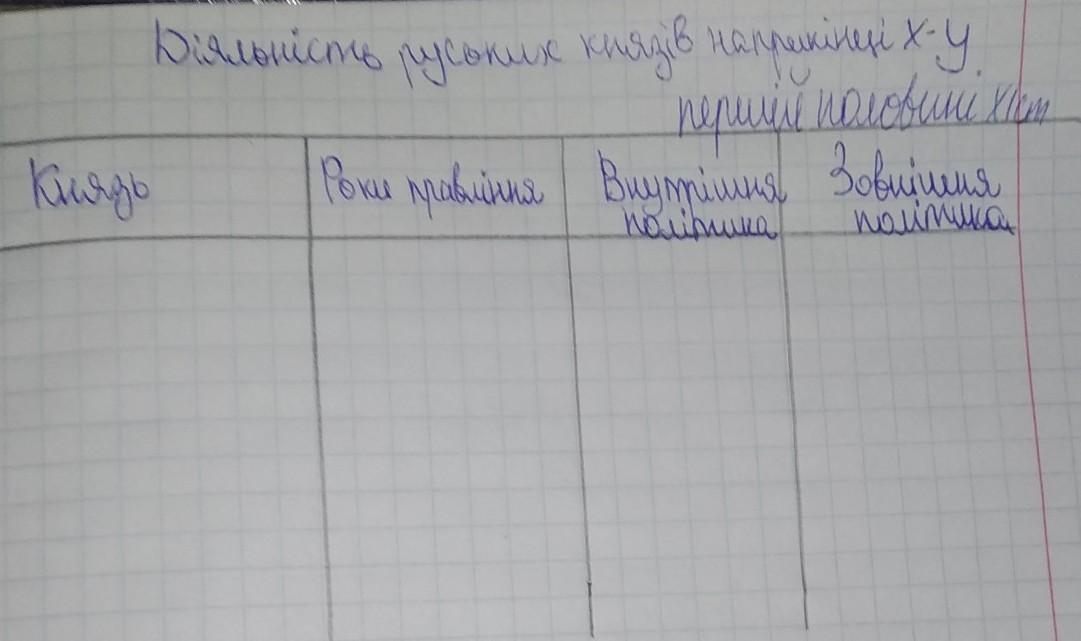 Діяльність руських князів наприкінці X-у
першій половині XI ст
Князь Роки правління Внутрішня Зовнішня
політика політика